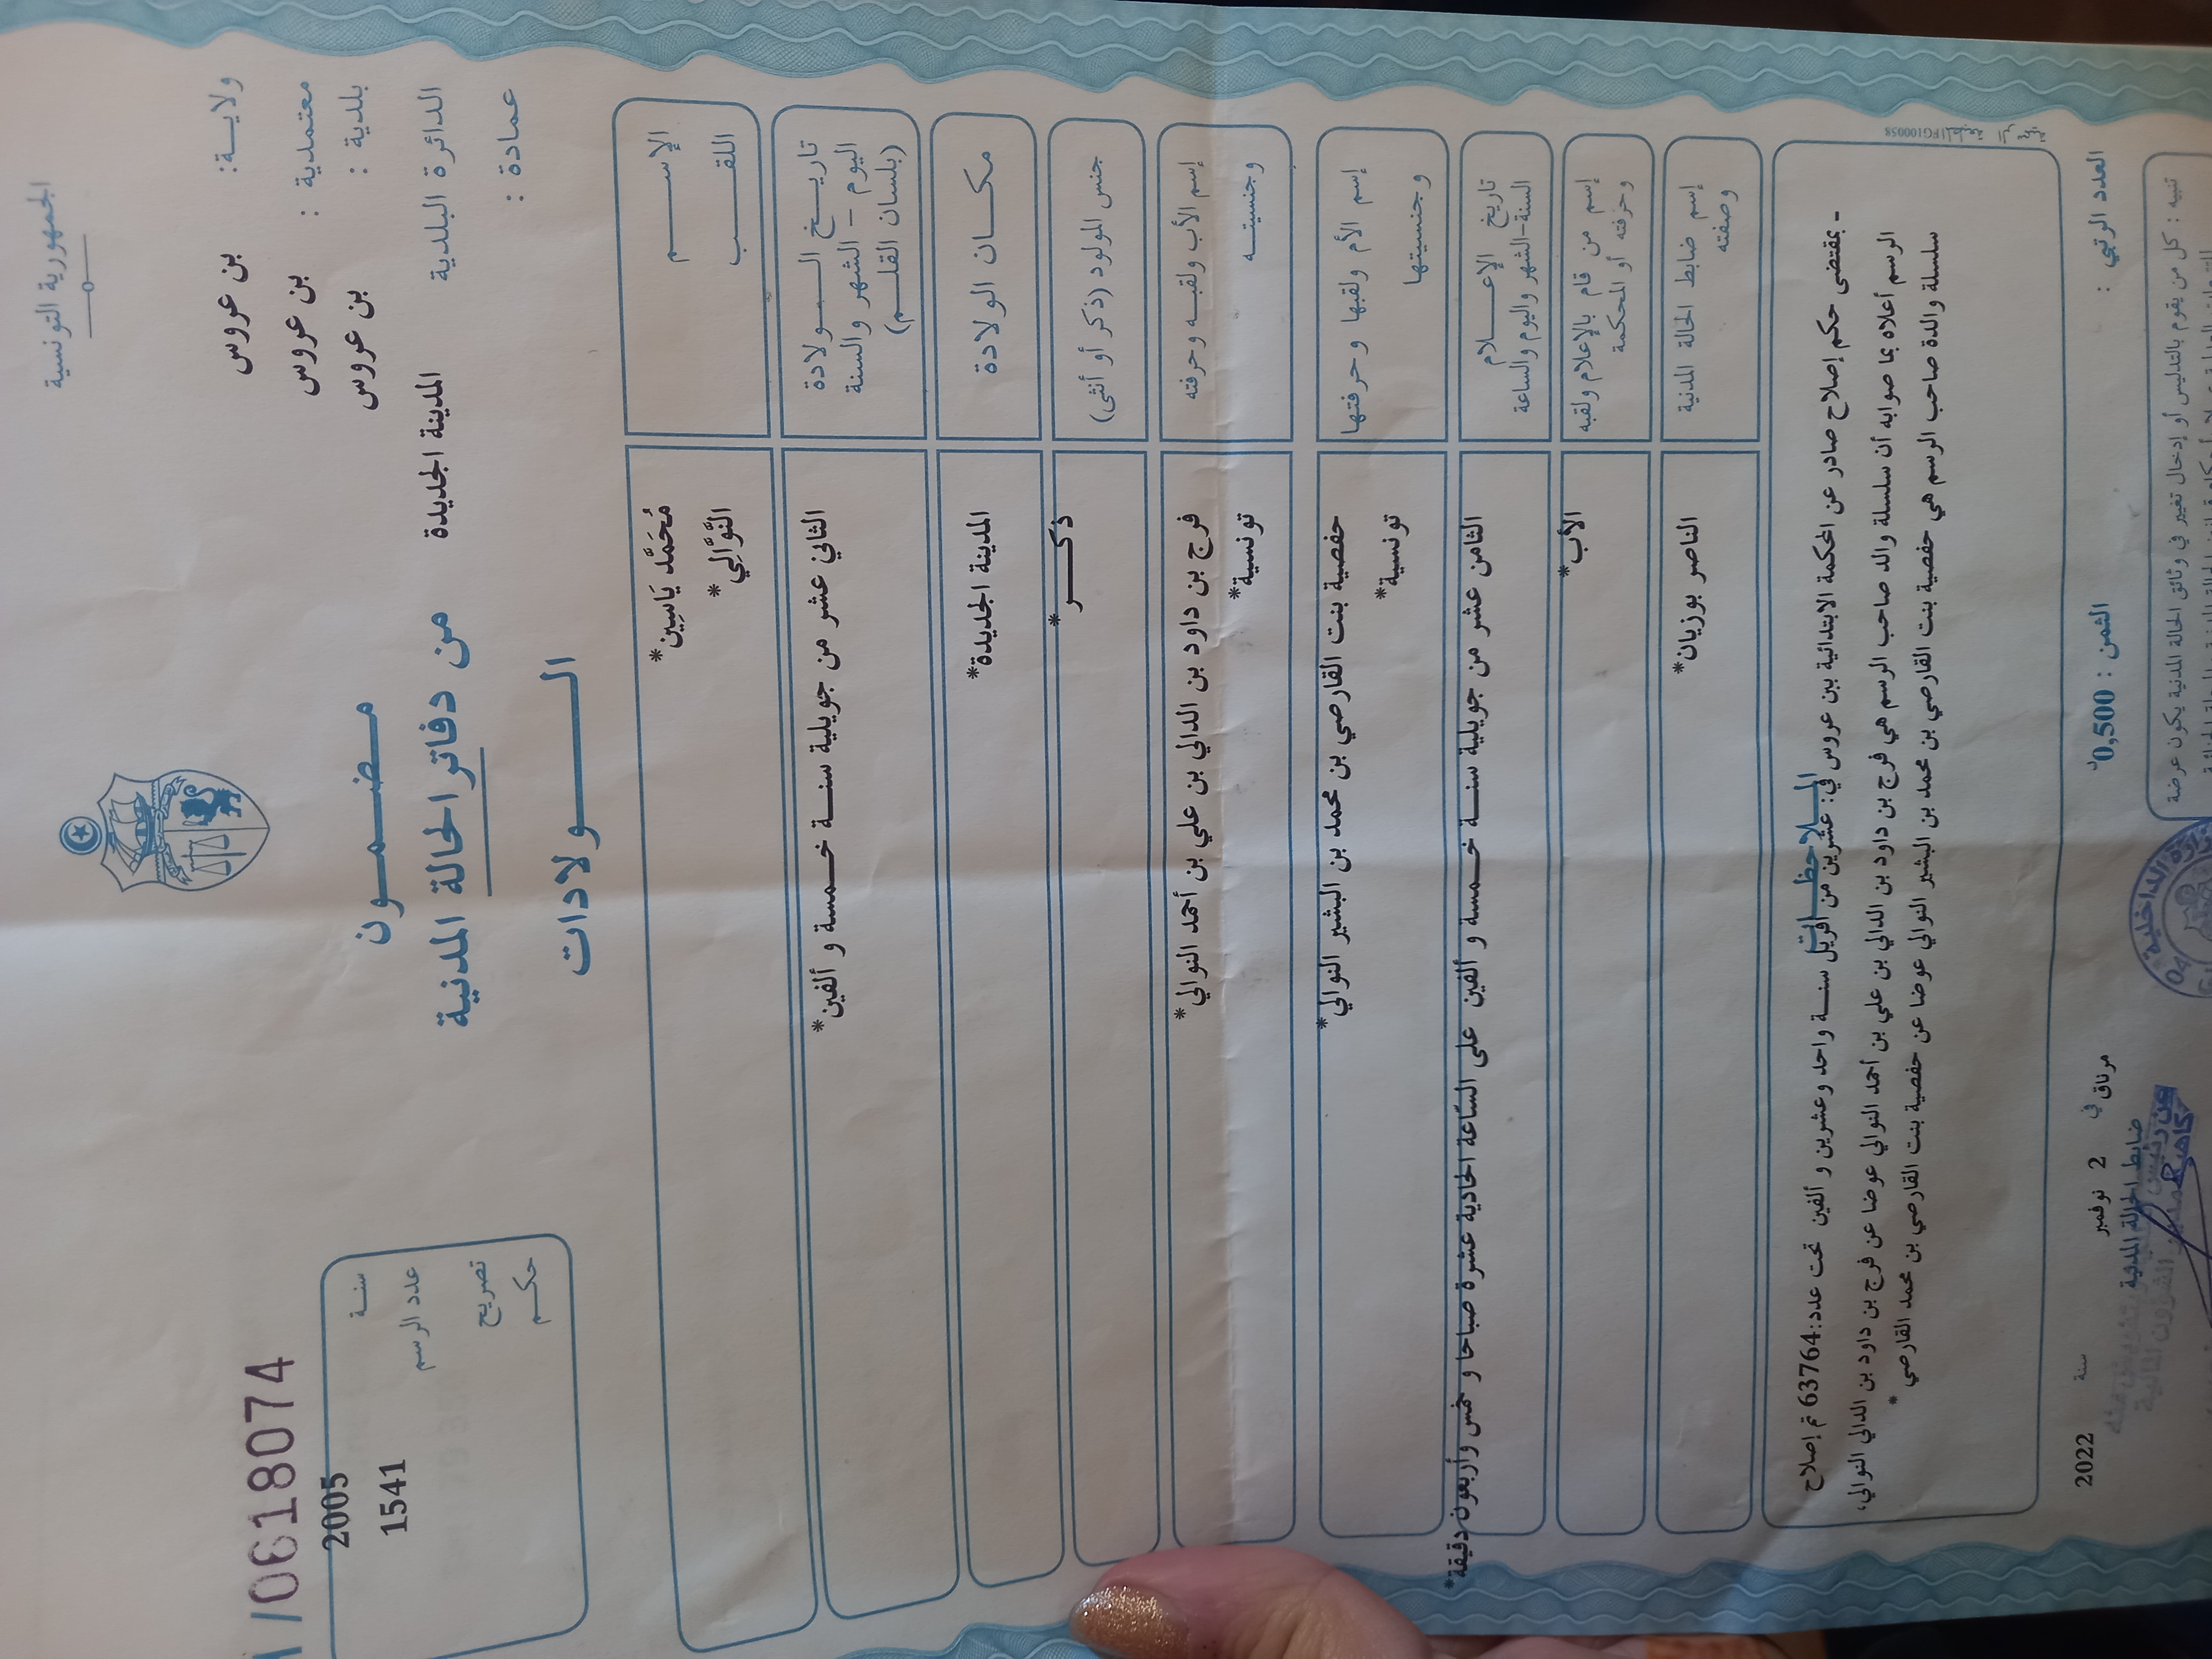 الجمهورية التونسية
ولايـــة: بن عروس
معتمدية : بن عروس
بلدية : بن عروس
الدائرة البلدية المدينة الجديدة
عمادة :
مضمـــون
من دفاتر الحالة المدنية
الـــولادات
/0618074
سنـة 2005
عدد الرسم 1541
تصريح
حكـم
الإســـم مُحَمَّد يَاسِين*
اللقـــب النَّوَّالِي*
تاريـــخ الـــولادة الثاني عشر من جويلية سنـــة خـــمسة و ألفين*
اليوم – الشهر والسنة
(بلسان القلـــم)
مكـــان الولادة المدينة الجديدة*
جنس المولود (ذكر أو أنثى) ذكـــر*
إسم الأب ولقبـه وحرفته فرج بن داود بن الدالي بن علي بن أحمد النوالي*
وجنسيتـــه تونسية*
إسم الأم ولقبها وحرفتها حفصية بنت القارصي بن محمد بن البشير النوالي*
وجنسيتها تونسية*
تاريخ الإعـــلام الثامن عشر من جويلية سنـــة خـــمسة و ألفين على السّاعة الحادية عشرة صباحا و خمس وأربعون دقيقة*
السنة-الشهر واليوم والساعة
إسم من قام بالإعلام ولقبه الأب*
وحرفته أو المحكمة
إسم ضابط الحالة المدنية الناصر بوزيان*
وصفته
الملاحظـــات
- بمقتضى حكم إصلاح صادر عن المحكمة الابتدائية ببن عروس في: عشرين من افريل سنـــة واحد وعشرين و ألفين تحت عدد:63764 تم إصلاح
الرسم أعلاه بما صوابه أن سلسلة والد صاحب الرسم هي فرج بن داود بن الدالي بن علي بن أحمد النوالي عوضا عن فرج بن داود بن الدالي النوالي،
سلسلة والدة صاحب الرسم هي حفصية بنت القارصي بن محمد بن البشير النوالي عوضا عن حفصية بنت القارصي بن محمد القارصي*
العدد الرتبي : الثمن : 0,500د مرناق في 2 نوفمبر سنة 2022
ضابط الحالة المدنية
تنبيه : كل من يقوم بالتدليس أو إدخال تغيير في وثائق الحالة المدنية يكون عرضة